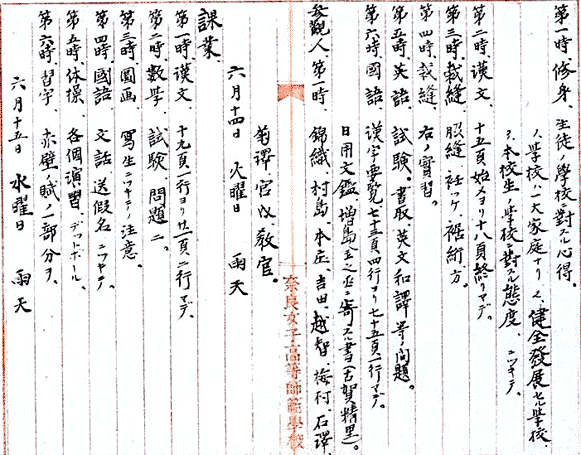 第一時、修身、生徒ノ學校ニ對スル心得。
ノ、學校ハ一大家庭ナリ 2、健全發展セル學校、
3、本校生ノ學校ニ對スル態度、ニツキテ、
第二時、漢文、十五頁始メヨリ十八頁終リマデ。
第三時、裁縫、脇縫、衽ツケ、裾絎方。
第四時、裁縫、右ノ實習。
第五時、英語、試験。書取、英文和譯等ノ問題。
第六時、國語、漢字要覧七十三頁四行ヨリ七十五頁一行マデ。
日用文鑑、増島玉之丞ニ寄スル書(古賀精里)。
参觀人 第一時 錦織、村島、本庄、吉田、越智、梅村、石澤、
菊澤、宮以、教官。
六月十四日 火曜日 雨天
課業
第一時、漢文 十九頁一行ヨリ廿一頁二行マデ。
第二時、數學、試験 問題二。
第三時、圖画 寫生ニツキテノ注意。
第四時、國語 文話 送假名ニツキテ
第五時、体操、各個演習、デットボール、
第六時、習字、赤壁ノ賦ノ一部分ヲ。
六月十五日 水曜日 雨天
奈良女子高等師範學校